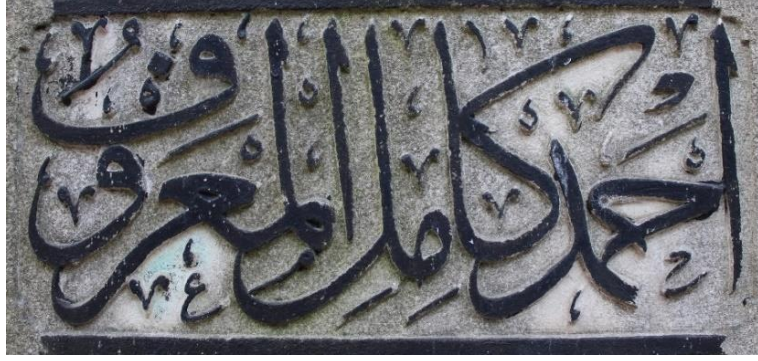 احمد كامل المعروف